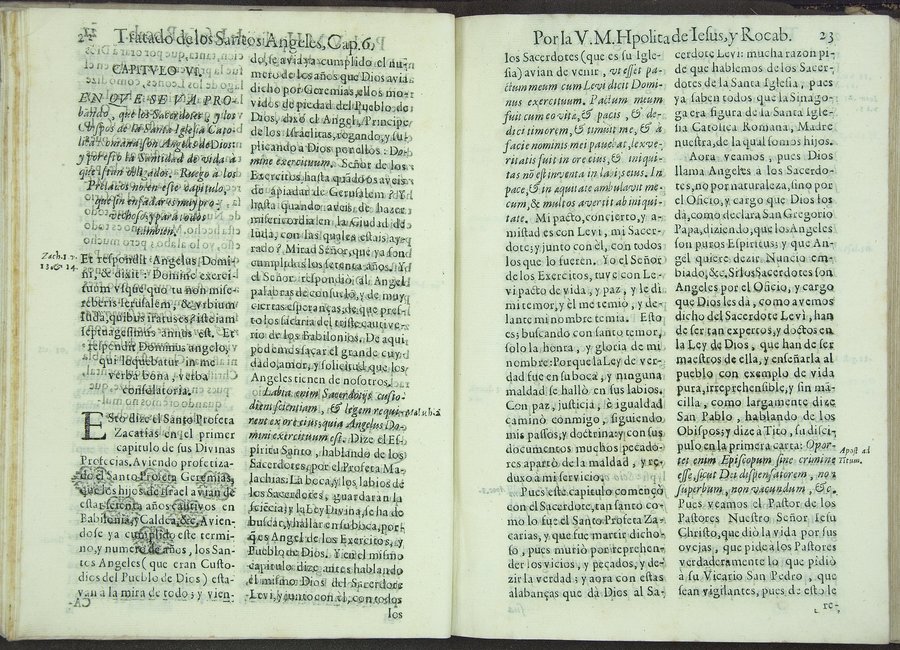 22 Tratado de los Santos Angeles, Cap. 6,
CAPITVLO VI.
EN QVE SE VA PRO-
bando, que los Sacerdotes, y los
Obispos de la Santa Iglesia Cato-
lica Romana son Angeles de Dios:
y por esto la Santidad de vida à
que estàn obligados. Ruego a los
Prelados noten este capitulo,
que sin enfadar es muy pro-
vechoso para todos
tambien.
Zach. 1. v.
13. & 14.
Et respondit Angelus Domi-
ni, & dixit: Domine exerci-
tuum vsque quo tu non mise-
reberis Ierusalem, & vrbium
Iuda, quibus iratus es? iste iam
septuagesimus annus est. Et
respondit Dominus angelo,
qui loquebatur in me
verba bona, verba
consolatoria.
ESto dize el Santo Profeta
Zacarias en el primer
capitulo de sus Divinas
Profecias, Aviendo profetiza-
do el Santo Profeta Geremias,
que los hijos de Israel avian de
estar setenta años cautivos en
Babilonia, y Caldea, &c. Avien-
dose ya cumplido este termi-
no, y numero de años, los San-
tos Angeles (que eran Custo-
dios del Pueblo de Dios) esta-
van a la mira de todo; y vien-
do, se avia ya cumplido el nu-
mero de los años que Dios avia
dicho por Geremias, ellos mo-
vidos de piedad del Pueblo de
Dios, dixo el Angel, Principe
de los Israelitas, rogando, y su-
plicando a Dios por ellos: Do-
mine exercituum. Señor de los
Exercitos hasta quãdo os aveis
de apiadar de Gerusalem? Y
hasta quando aveis de hazer
misericordia en la Ciudad de
Iuda, con las quales estais ay-
rado? Mirad Señor, que ya son
cumplidos los setenta años. Y
el Señor respondiò al Angel
palabras de consuelo, y de muy
ciertas esperanças, de que pres-
to los sacaria del triste cautive-
rio de los Babilonios. De aqui
podemos sacar el grande cuy-
dado, amor, y solicitud que los
Angeles tienen de nosotros.
Labia enim Sacerdotis custo-
dient scientiam, & legem requi-
rent ex ore eius, quia Angelus Do-
mini exercituum est. Dize el Es-
piritu Santo, hablando de los
Sacerdotes, por el Profeta Ma-
lachias: La boca, y los labios de
los Sacerdotes, guardaràn la
sciẽcia; y la Ley Divina, se ha de
buscar, y hallar en su boca, por-
que Angel de los Exercitos, y
Pueblo de Dios. Y en el mismo
capitulo dize antes hablando
el mismo Dios del Sacerdote
Levi, y junto con èl, con todos
los
Por la V. M. Hpolita de Iesus, y Rocab. 23
los Sacerdotes (que es su Igle-
sia) avian de venir, vt esset pa-
ctum meum cum Levi dicit Domi-
nus exercituum. Pactum meum
fuit cum eo vitæ, & pacis, & de-
di ei timorem, & timuit me, & à
facie nominis mei pavebat, lex ve-
ritatis fuit in ore eius, & iniqui-
tas nõ est inventa in labijs eius. In
pace, & in æquitate ambulavit me-
cum, & multos avertit ab iniqui-
tate. Mi pacto, concierto, y a-
mistad es con Levi, mi Sacer-
dote; y junto con èl, con todos
los que lo fueren. Yo el Señor
de los Exercitos, tuve con Le-
vi pacto de vida, y paz, y le di
mi temor, y èl me temiò, y de-
lante mi nombre temia. Esto
es; buscando con santo temor,
solo la honra, y gloria de mi
nombre: Porque la Ley de ver-
dad fue en su boca, y ninguna
maldad se hallò en sus labios.
Con paz, justicia, è igualdad
caminò conmigo, siguiendo
mis passos, y doctrina: y con sus
documentos muchos pecado-
res apartò de la maldad, y re-
duxo a mi servicio.
Pues este capitulo començò
con el Sacerdote, tan santo co-
mo lo fue el Santo Profeta Za-
carias, y que fue martir dicho-
so, pues muriò por reprehen-
der los vicios, y pecados, y de-
zir la verdad; y aora con estas
alabanças que dà Dios al Sa-
cerdote Levi: mucha razon pi-
de que hablemos de los Sacer-
dotes de la Santa Iglesia, pues
ya saben todos que la Sinago-
ga era figura de la Santa Igle-
sia Catolica Romana, Madre
nuestra, de la qual somos hijos.
Aora veamos, pues Dios
llama Angeles a los Sacerdo-
tes, no por naturaleza, sino por
el Oficio, y cargo que Dios los
dà, como declara San Gregorio
Papa, diziendo, que los Angeles
son puros Espiritus; y que An-
gel quiere dezir Nuncio em-
biado, &c. Si los Sacerdotes son
Angeles por el Oficio, y cargo
que Dios les dà, como avemos
dicho del Sacerdote Levi, han
de ser tan expertos, y doctos en
la Ley de Dios, que han de ser
maestros de ella, y enseñarla al
pueblo con exemplo de vida
pura, irreprehensible, y sin mã-
cilla, como largamente dize
San Pablo, hablando de los
Obispos; y dize a Tito, su disci-
pulo en la primera carta: Opor-
tet enim Episcopum sine crimine
esse, sicut Dei dispensatorem, non
superbum, non iracundum, &c.
Pues veamos el Pastor de los
Pastores Nuestro Señor Iesu
Christo, que diò la vida por sus
ovejas, que pide a los Pastores
verdaderamente lo que pidiò
a su Vicario San Pedro, que
sean vigilantes, pues de esto le
re-
Apost. ad
Titum.